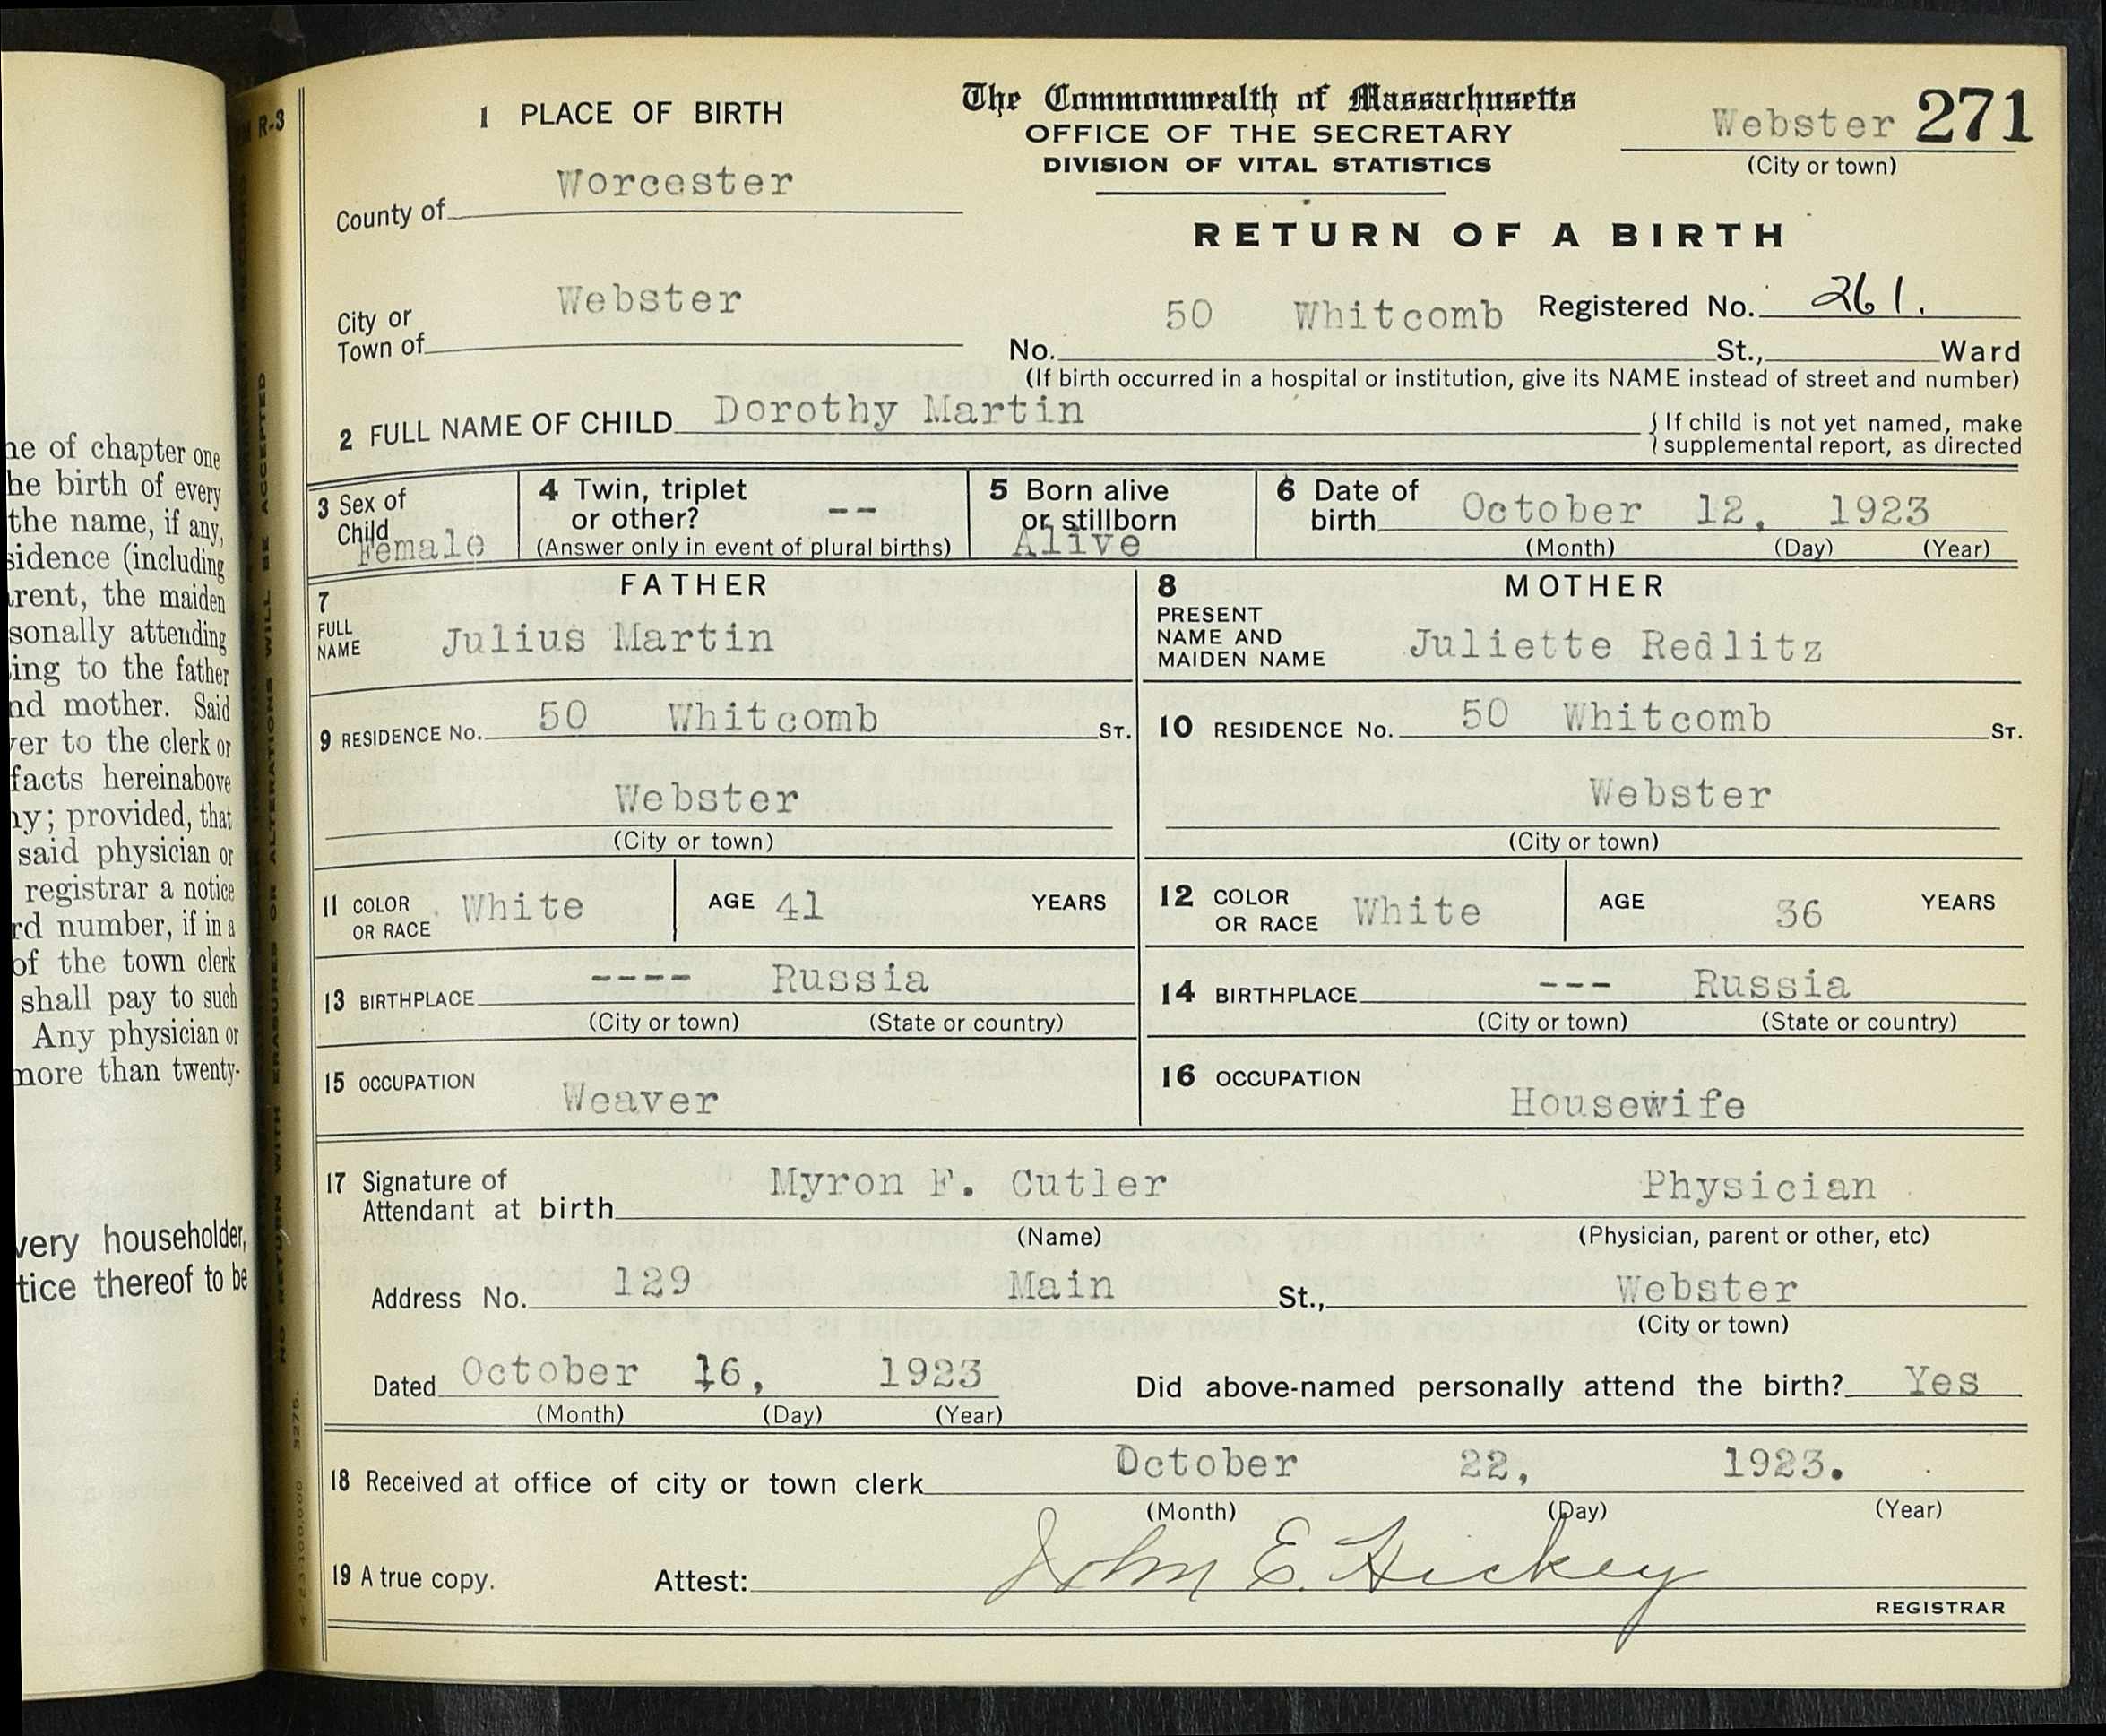 The Commonwealth of Massachusetts
OFFICE OF THE SECRETARY
DIVISION OF VITAL STATISTICS
RETURN OF A BIRTH
Webster 271
(City or town)
1 PLACE OF BIRTH
County of Worcester
City or Town of Webster
Registered No. 261.
No. 50 Whitcomb St., Ward
(If birth occurred in a hospital or institution, give its NAME instead of street and number)
2 FULL NAME OF CHILD Dorothy Martin
{If child is not yet named, make
supplemental report, as directed
3 Sex of
Child
Female
4 Twin, triplet
or other? --
(Answer only in event of plural births)
5 Born alive
or stillborn
Alive
6 Date of
birth October 12, 1923
(Month) (Day) (Year)
FATHER
7
FULL
NAME Julius Martin
8 MOTHER
PRESENT
NAME AND
MAIDEN NAME Juliette Redlitz
9 RESIDENCE No. 50 Whitcomb ST.
Webster
(City or town)
10 RESIDENCE No. 50 Whitcomb ST.
Webster
(City or town)
11 COLOR
OR RACE White AGE 41 YEARS
12 COLOR
OR RACE White AGE 36 YEARS
13 BIRTHPLACE ---- Russia
(City or town) (State or country)
14 BIRTHPLACE --- Russia
(City or town) (State or country)
15 OCCUPATION Weaver
16 OCCUPATION Housewife
17 Signature of
Attendant at birth Myron F. Cutler Physician
(Name) (Physician, parent or other, etc)
Address No. 129 Main St., Webster
(City or town)
Dated October 16, 1923 Did above-named personally attend the birth? Yes
(Month) (Day) (Year)
18 Received at office of city or town clerk October 22, 1923.
(Month) (Day) (Year)
19 A true copy. Attest: John E. Hickey
REGISTRAR
R-3
of chapter one
birth of every
the name, if any,
(including
the maiden
attending
to the father
mother. Said
to the clerk or
facts hereinabove
; provided, that
said physician or
registrar a notice
number, if in a
of the town clerk
shall pay to such
Any physician or
more than twenty-
householder,
thereof to be
NO RETURN WITH ERASURES OR ALTERATIONS WILL BE ACCEPTED